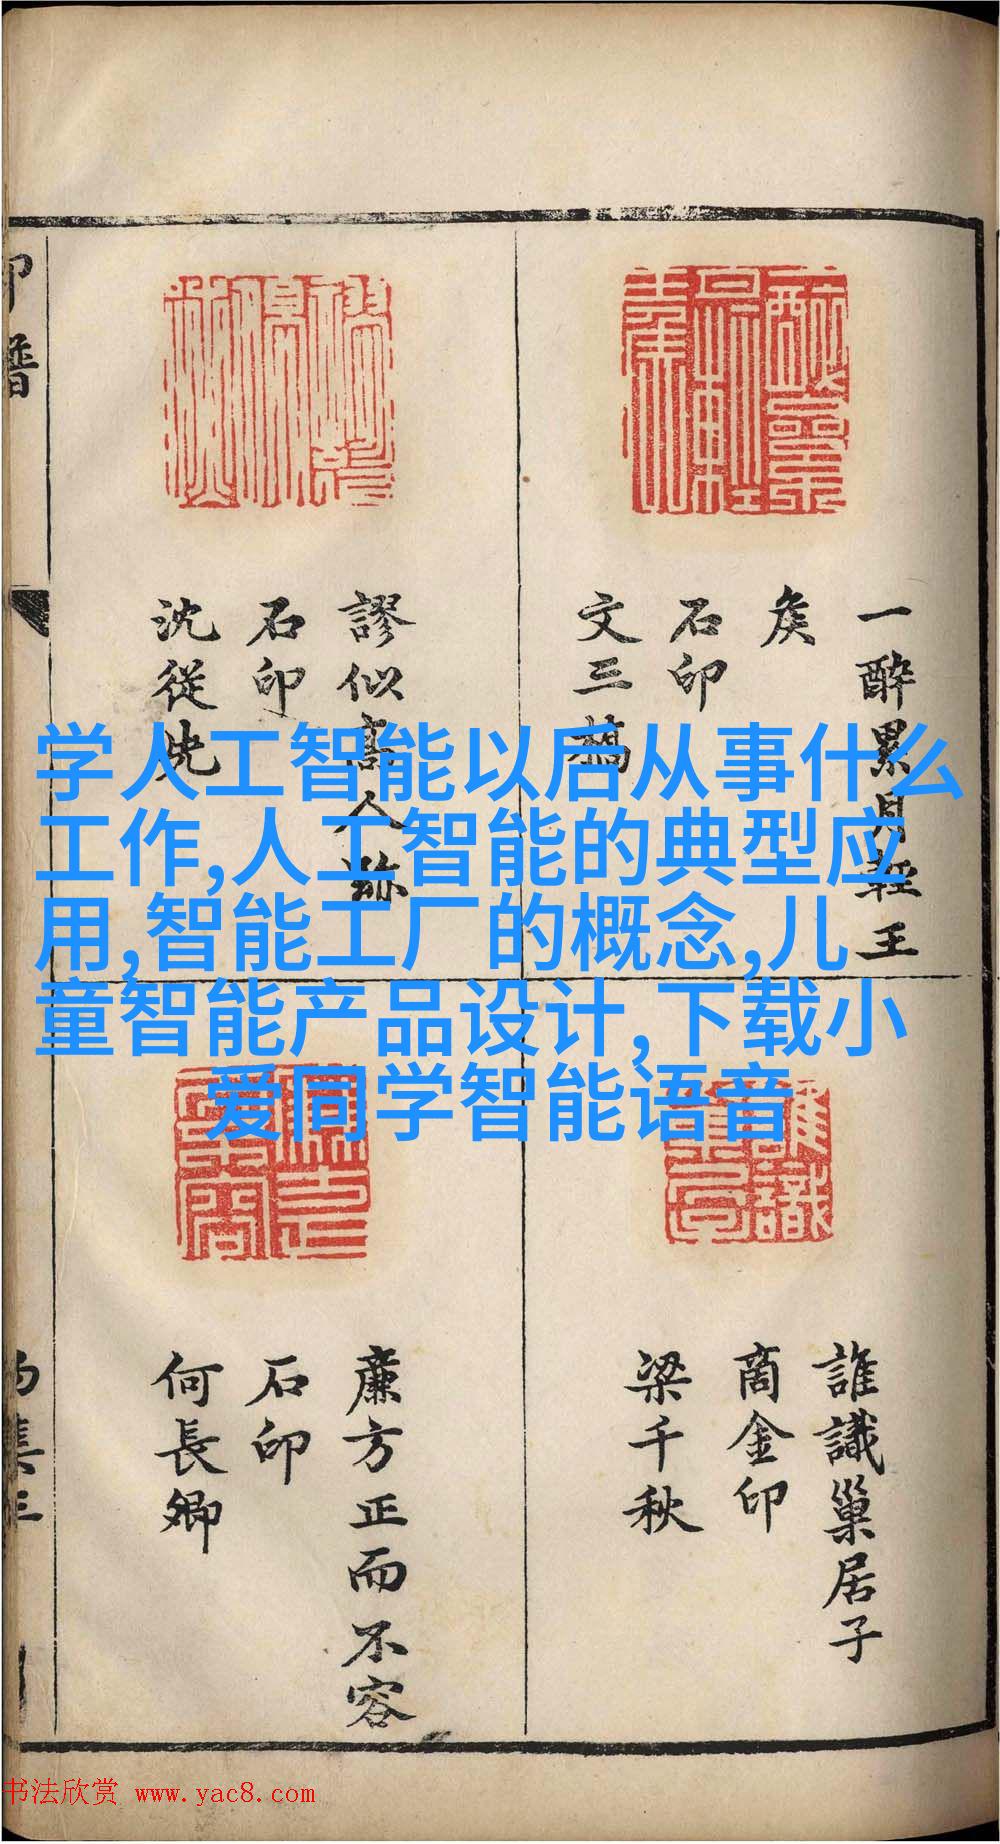 学人工智能以后从事什么
工作,人工智能的典型应
用,智能工厂的概念,儿
童智能产品设计,下载小
爱同学智能语音
一醉累月轻王
矦
石印
文三橋
謬似高人跡
石印
沈從先
誰識巢居子
商金印
梁千秋
廉方正而不容
石印
何長卿
书法欣赏 www.yac8.com